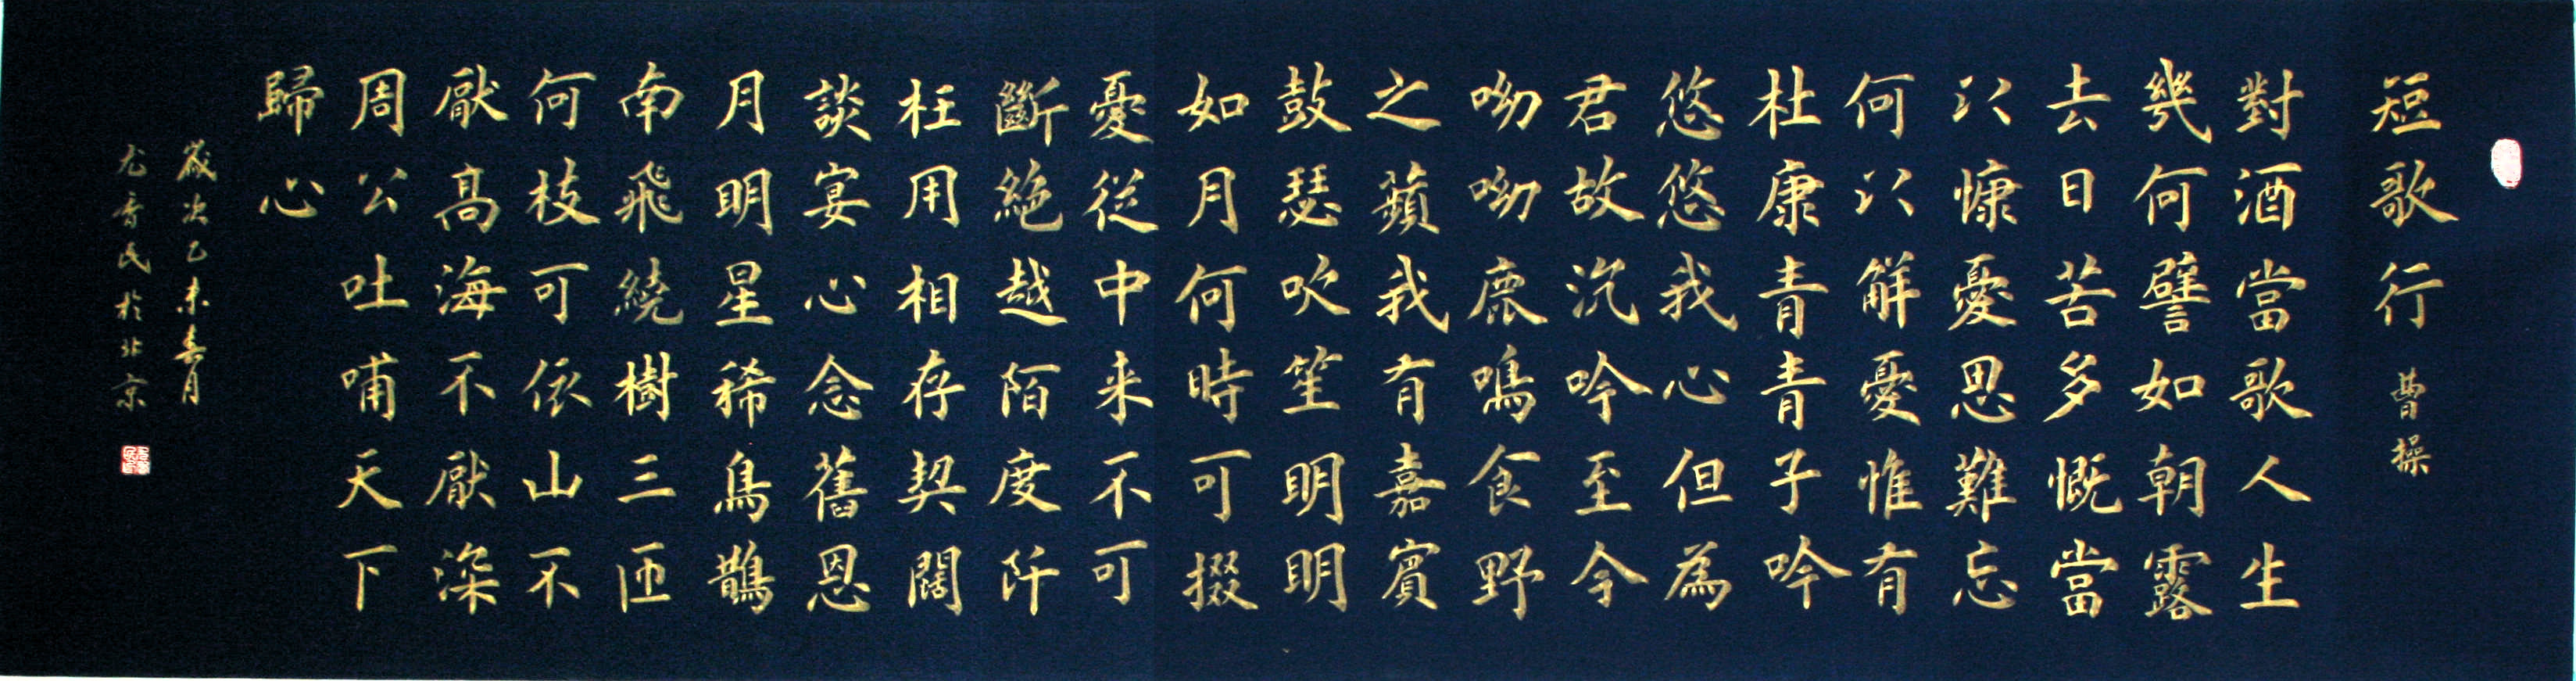 短歌行 曹操
對酒當歌人生
幾何譬如朝露
去日苦多慨當
以慷憂思難忘
何以解憂惟有
杜康青青子吟
悠悠我心但為
君故沉吟至今
呦呦鹿鳴食野
之蘋我有嘉賓
鼓瑟吹笙明明
如月何時可掇
憂從中来不可
斷絕越陌度阡
枉用相存契闊
談宴心念舊恩
月明星稀鳥鵲
南飛繞樹三匝
何枝可依山不
厭高海不厭深
周公吐哺天下
歸心
歲次乙未春月
尤民於北京